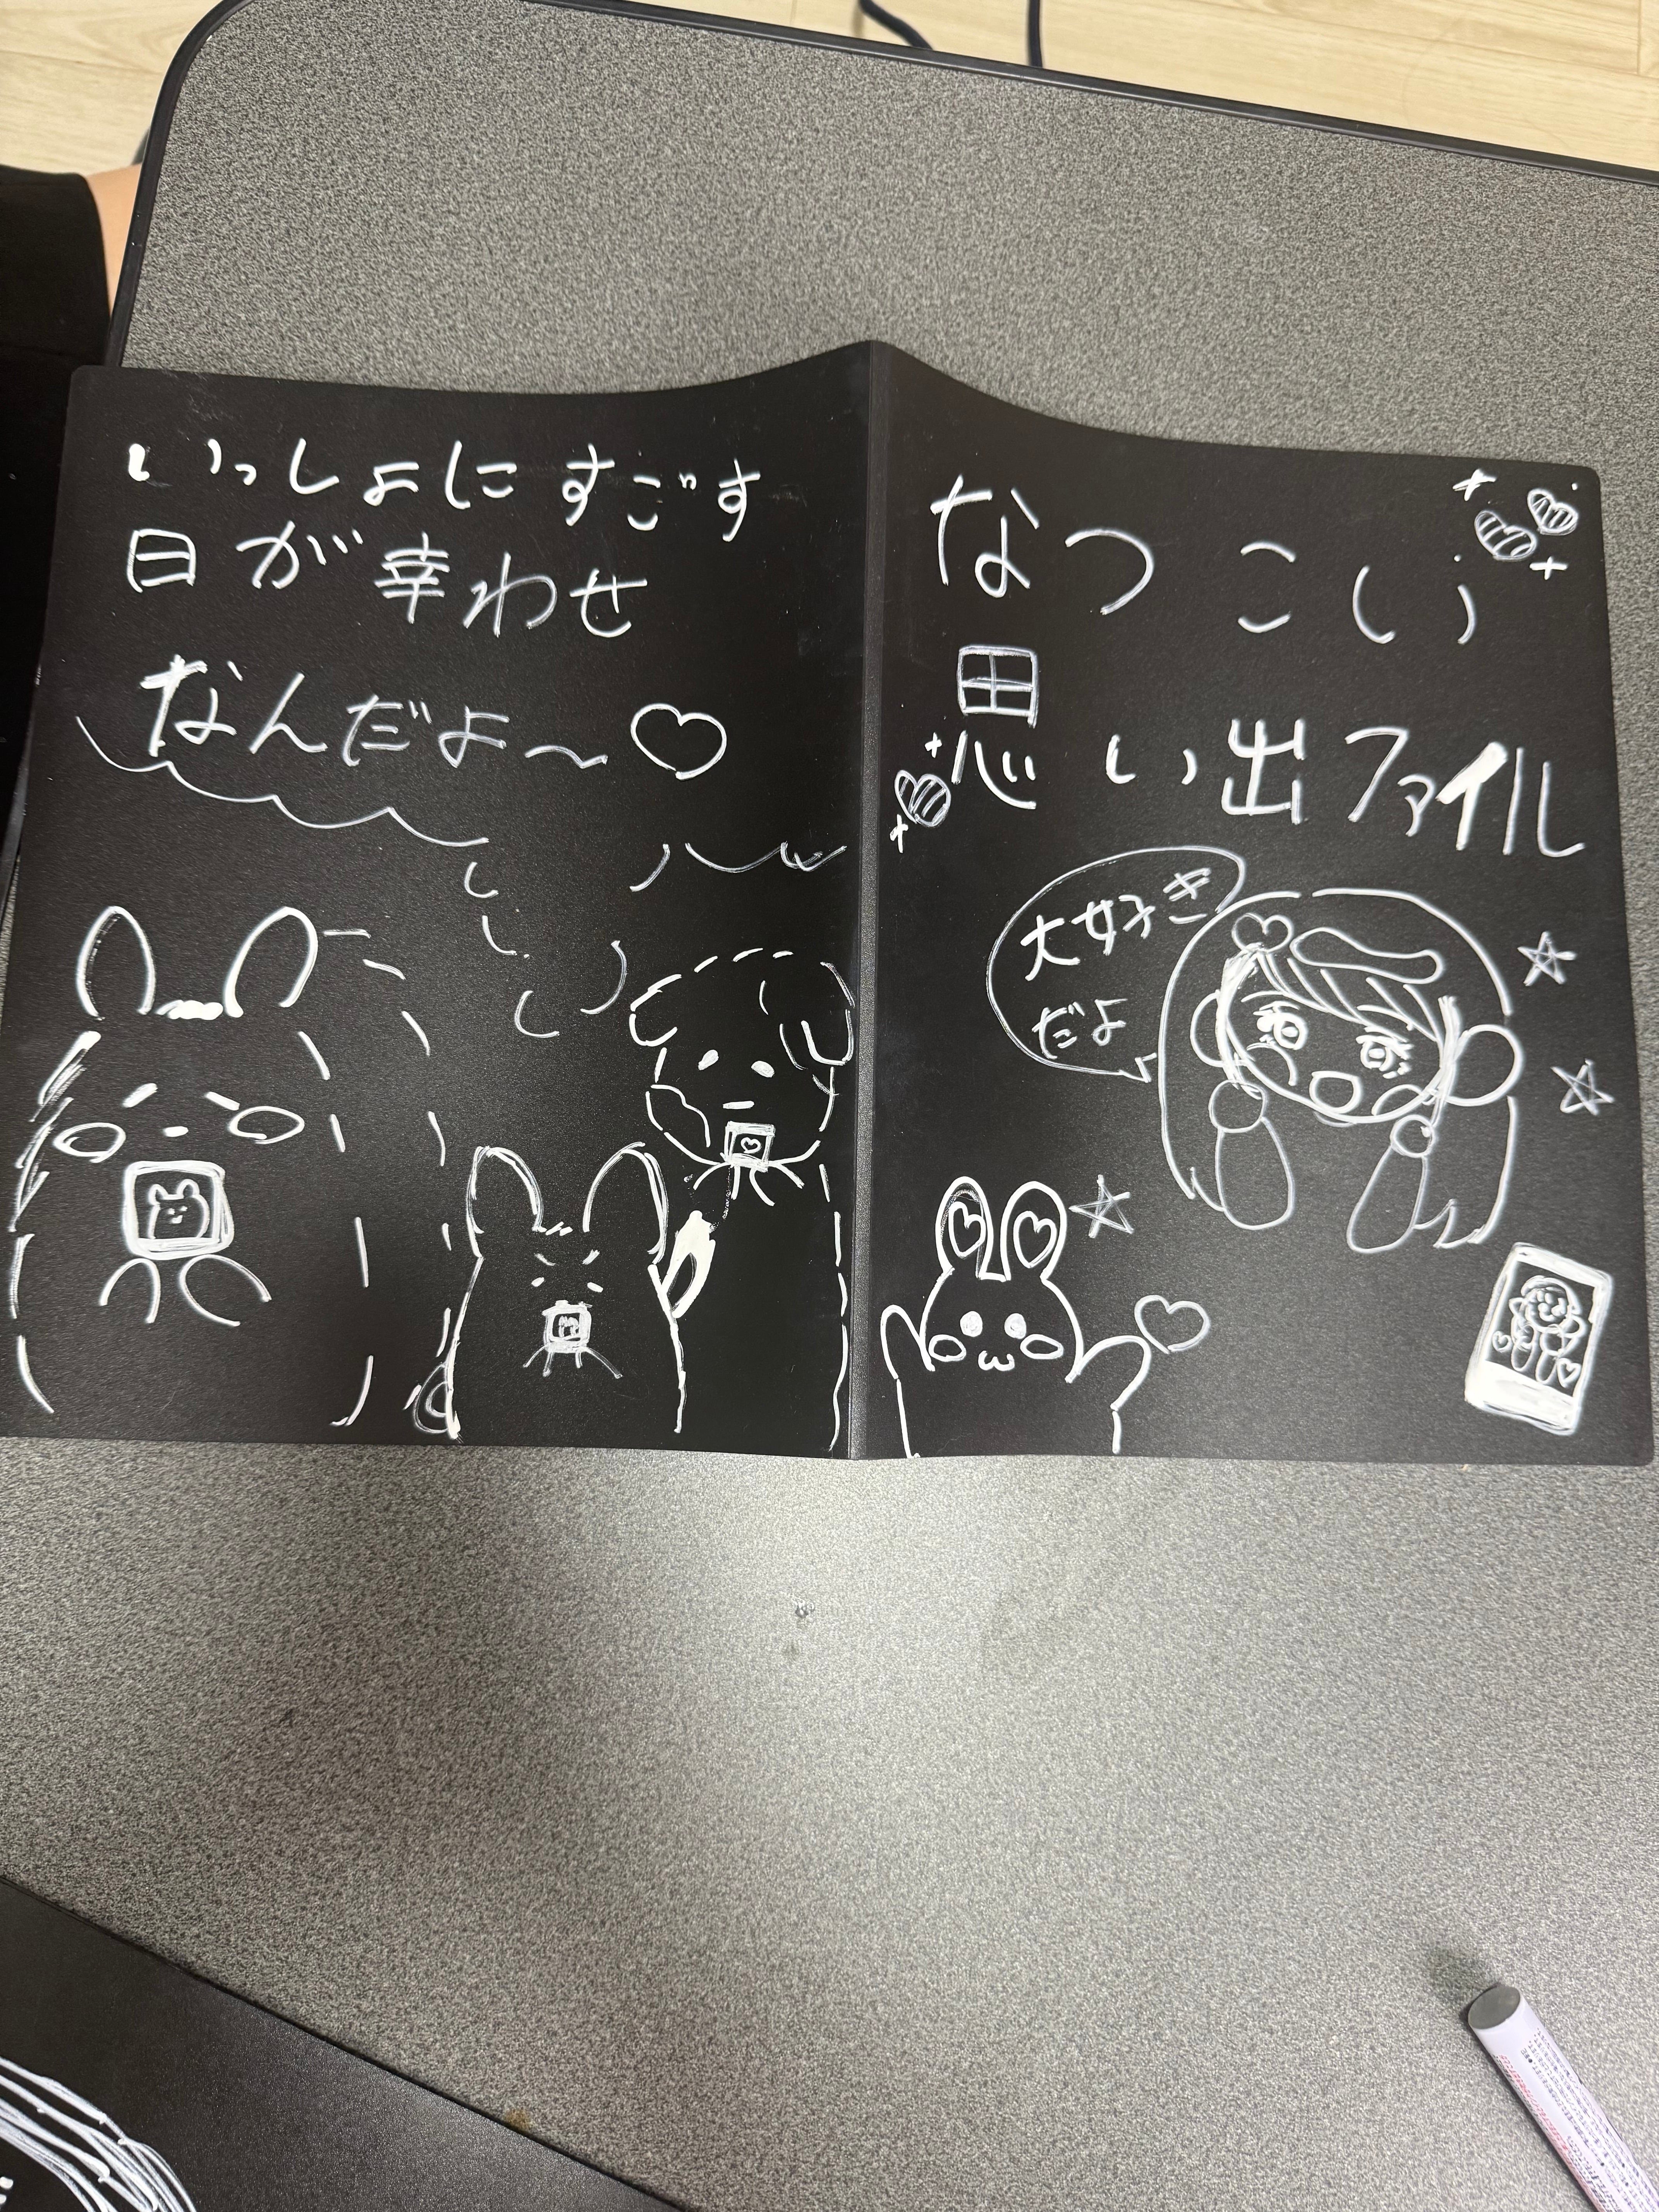 いっしょにすごす
日が幸わせ
なんだよ〜♡
なつこい
思い出ファイル
大好き
だよ